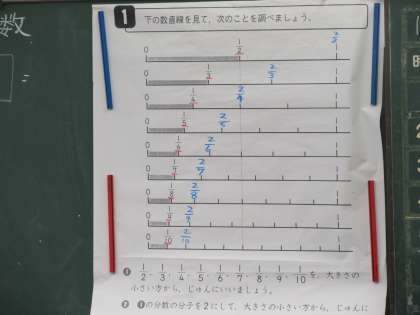 数
1 下の数直線を見て、次のことを調べましょう。
0 1/2 2/2 1
0 1/3 2/3 1
0 1/4 2/4 1
0 1/5 2/5 1
0 1/6 2/6 1
0 1/7 2/7 1
0 1/8 2/8 1
0 1/9 2/9 1
0 1/10 2/10 1
❶ 1/2、1/3、1/4、1/5、1/6、1/7、1/8、1/9、1/10を、大きさの
小さい方から、じゅんにいいましょう。
❷ ❶の分数の分子を2にして、大きさの小さい方から、じゅんに